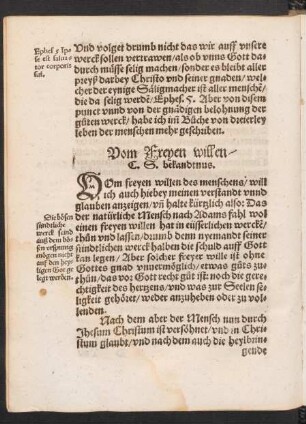 Und volget drumb nicht das wir auff unsere
werck sollen vertrawen/als ob unns Gott da-
durch müsse selig machen/sonder es bleibt aller
preyß darbey Christo vnd seiner gnaden/wel-
cher der eynige Säligmacher ist aller mensche/
die da selig werdē/Ephes. 5. Aber von disem
punct vnnd von der gnädigen belohnung der
gůten werck/habe ich im Bůche von dreierley
leben der menschen mehr geschriben.
Ephes 5 Ip-
se est salua-
tor corporis
sui.
Vom Freyen willen
C. S. bekandtnus.
VOm freyen willen des menschens/will
ich auch hiebey meinen verstandt vnnd
glauben anzeigen/vñ halte kürtzlich also: Das
der natürliche Mensch nach Adams fahl wol
einen freyen willen hat in eüsserlichen werckē/
thůn vnd lassen/drumb denn nyemandt seiner
sündtlichen werck halben die schuld auff Gott
kan legen/Aber solcher freye wille ist ohne
Gottes gnad vnuermöglich/etwas gůts zu-
thůn/das vor Gott recht gůt ist/noch die gere-
chtigkeit des hertzens/vnd was zur Seelen se-
ligkeit gehöret/weder anzuheben oder zu vol-
lenden.
Die bösen
sündtliche
werck sind
auß dem bö-
sen ersprungē
mögen nicht
auff den hey-
ligen Got ge-
legt werden.
Nach dem aber der Mensch nun durch
Jhesum Christum ist versöhnet/vnd in Chri-
stum glaubt/vnd nach dem auch die heylbrin-
gende